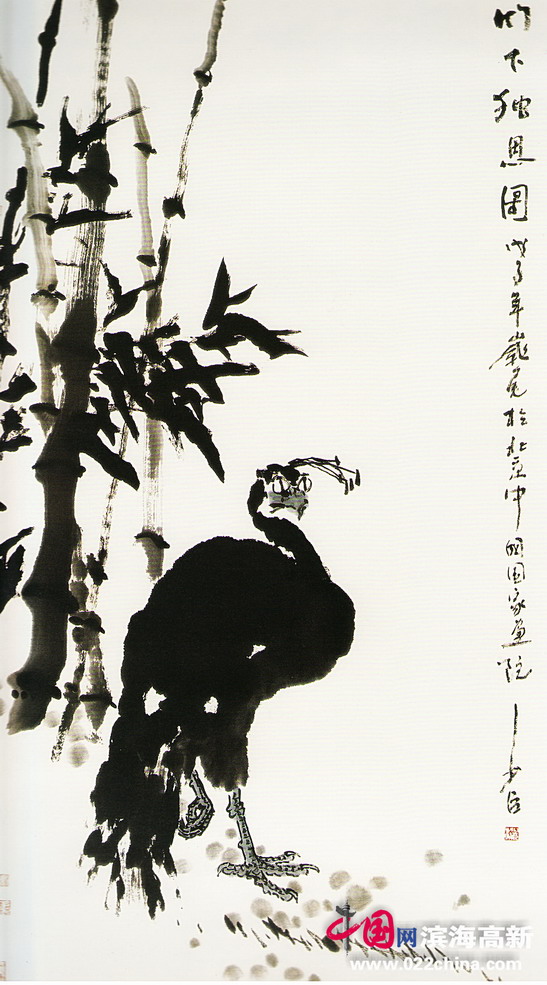 竹下独思圖戊子年於北京中國国家畫院
中国网滨海高新
www.022china.com